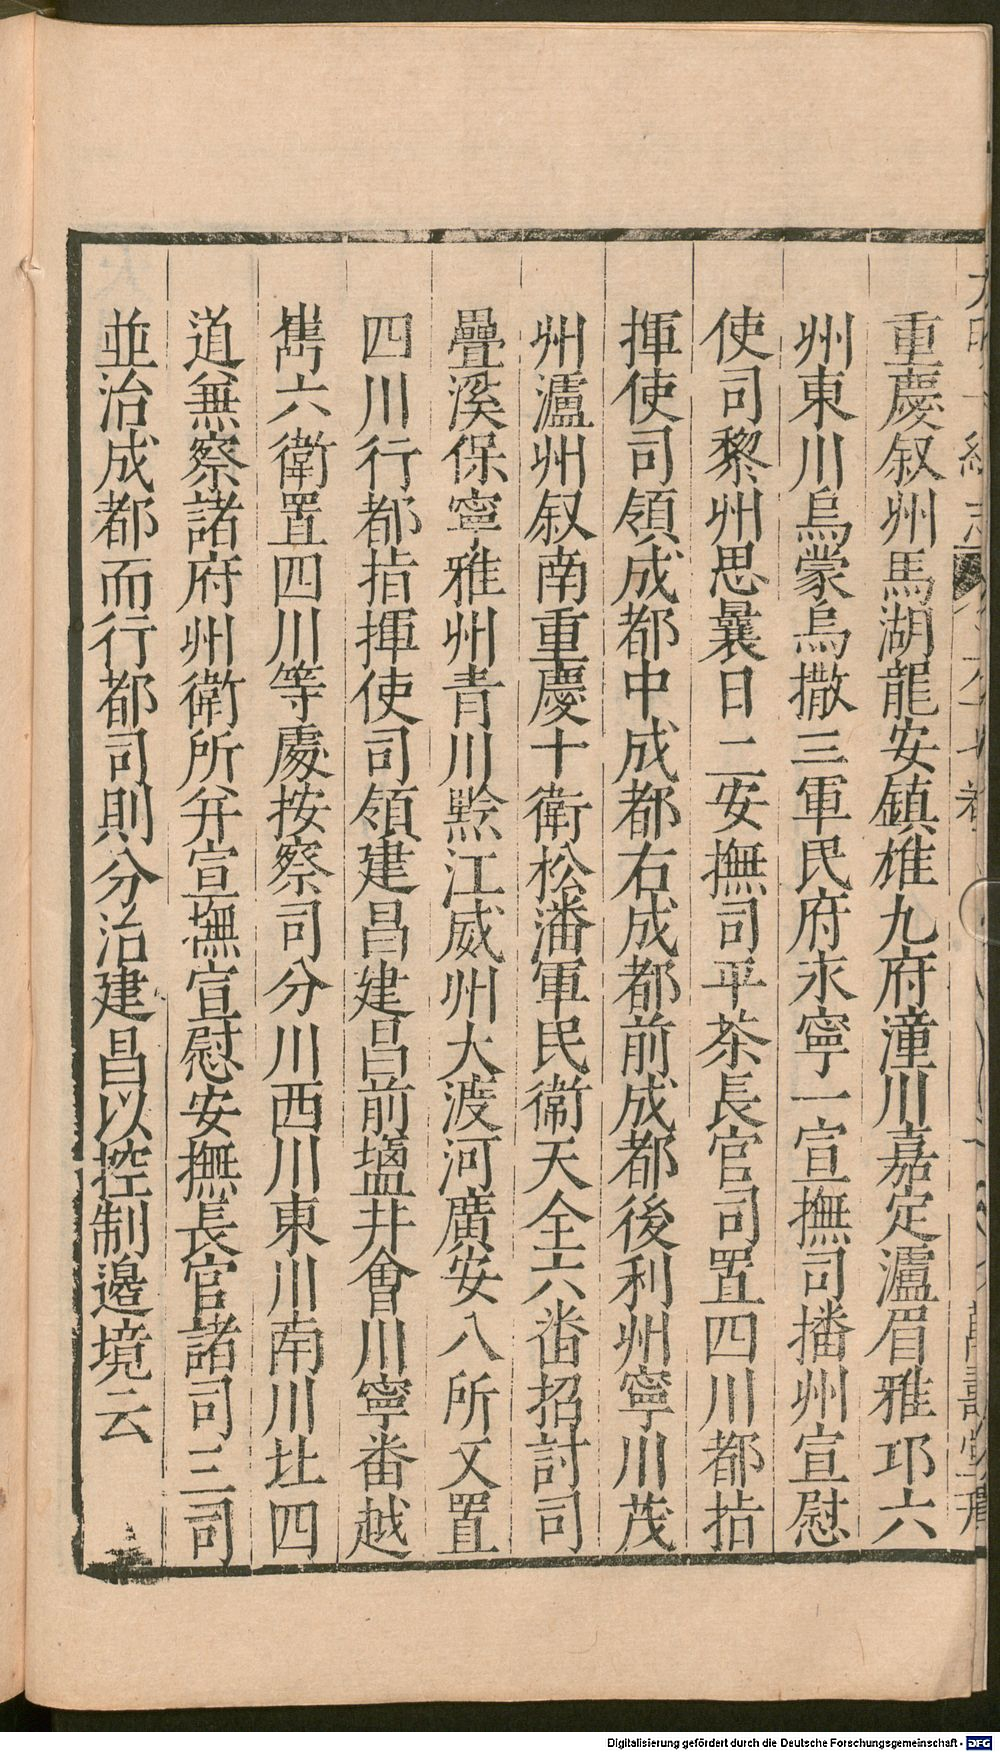 重慶叙州馬湖龍安鎮雄九府潼川嘉定瀘眉雅邛六
州東川烏蒙烏撒三軍民府永寧一宣撫司播州宣慰
使司黎州思曩日二安撫司平茶長官司置四川都指
揮使司領成都中成都右成都前成都後利州寧川茂
州瀘州叙南重慶十衛松潘軍民衛天全六畨招討司
疊溪保寧雅州青川黔江威州大渡河廣安八所又置
四川行都指揮使司領建昌建昌前鹽井會川寧畨越
嶲六衛置四川等處按察司分川西川東川南川北四
道兼察諸府州衛所并宣撫宣慰安撫長官諸司三司
並治成都而行都司則分治建昌以控制邊境云
Digitalisierung gefördert durch die Deutsche Forschungsgemeinschaft - DFG